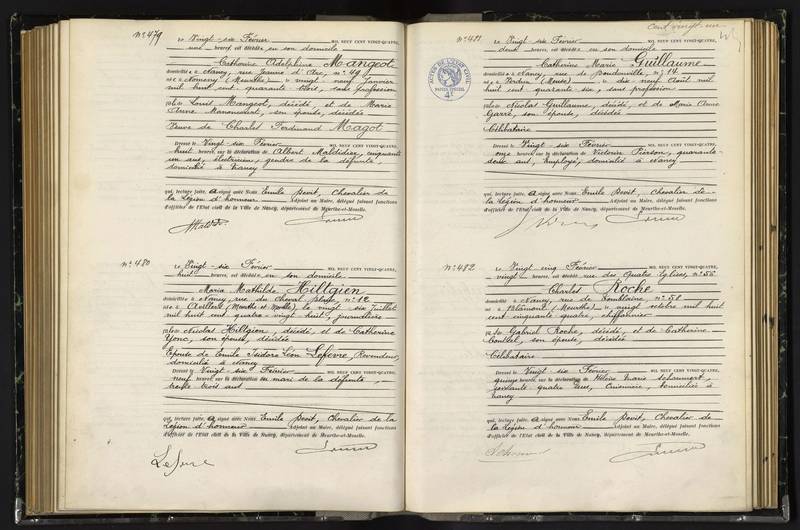 N° 479
Le Vingt-six Février MIL NEUF CENT VINGT-QUATRE,
une heure, est décédée en son domicile
Catherine Adelphine Mangeot
domiciliée à Nancy, rue Jeanne d'Arc, n° 49
née à Nomeny (Meurthe) le vingt neuf Janvier
mil huit cent quarante trois, sans profession
fille de Louis Mangeot, décédé, et de Marie
Anne son épouse, décédée
Veuve de Charles Ferdinand Magot
Dressé le Vingt-six Février MIL NEUF CENT VINGT-QUATRE,
huit heures, sur la déclaration de Albert Maldidier, cinquante
un ans, électricien, gendre de la défunte,
domicilié à Nancy
qui, lecture faite, a signé avec Nous Emile Devit, Chevalier de
la Légion d'honneur Adjoint au Maire, délégué faisant fonctions
d'officier de l'Etat civil de la Ville de Nancy, département de Meurthe-et-Moselle.
N° 480
Le Vingt-six Février MIL NEUF CENT VINGT-QUATRE,
huit heures, est décédée en son domicile
Maria Mathilde Hiltgien
domiciliée à Nancy, rue du Cheval blanc, n° 12
née à (Meurthe et Moselle), le vingt six Juillet
mil huit cent quatre vingt huit, journalière
fille de Nicolas Hiltgien, décédé, et de Catherine
son épouse, décédée
Epouse de Emile Isidore Léon Lefèvre, Revendeur,
domicilié à Nancy
Dressé le Vingt six Février MIL NEUF CENT VINGT-QUATRE,
neuf heures, sur la déclaration du mari de la défunte,
trente trois ans
qui, lecture faite, a signé avec Nous Emile Devit, Chevalier de la
Légion d'honneur Adjoint au Maire, délégué faisant fonctions
d'officier de l'Etat civil de la Ville de Nancy, département de Meurthe-et-Moselle.
Lefèvre
Cent vingt-un
N° 481
Le Vingt-six Février MIL NEUF CENT VINGT-QUATRE,
deux heures, est décédée en son domicile
Catherine Marie Guillaume
domiciliée à Nancy, rue de Boudonville, n° 14
née à Verdun (Meuse) le dix neuf Août mil
huit cent quarante six, sans profession
fille de Nicolas Guillaume, décédé, et de Marie Anne
Garré, son épouse, décédée
Célibataire
Dressé le Vingt-six Février MIL NEUF CENT VINGT-QUATRE,
onze heures, sur la déclaration de Victorin Pierson, quarante-
deux ans, employé, domicilié à Nancy
qui, lecture faite, a signé avec Nous Emile Devit, Chevalier de
la Légion d'honneur Adjoint au Maire, délégué faisant fonctions
d'officier de l'Etat civil de la Ville de Nancy, département de Meurthe-et-Moselle.
N° 482
Le Vingt cinq Février MIL NEUF CENT VINGT-QUATRE,
vingt heures, est décédé rue des Quatre Eglises, n° 56
Charles Roche
domicilié à Nancy, rue de Tomblaine, n° 58
né à Blâmont (Meurthe) le vingt octobre mil huit
cent cinquante quatre, chiffonnier
fils de Gabriel Roche, décédé, et de Catherine
son épouse, décédée
Célibataire
Dressé le Vingt six Février MIL NEUF CENT VINGT-QUATRE,
quinze heures, sur la déclaration de Marie
quatre ans, Cuisinière, domiciliée à
Nancy
qui, lecture faite, a signé avec Nous Emile Devit, Chevalier de
la Légion d'honneur Adjoint au Maire, délégué faisant fonctions
d'officier de l'Etat civil de la Ville de Nancy, département de Meurthe-et-Moselle.